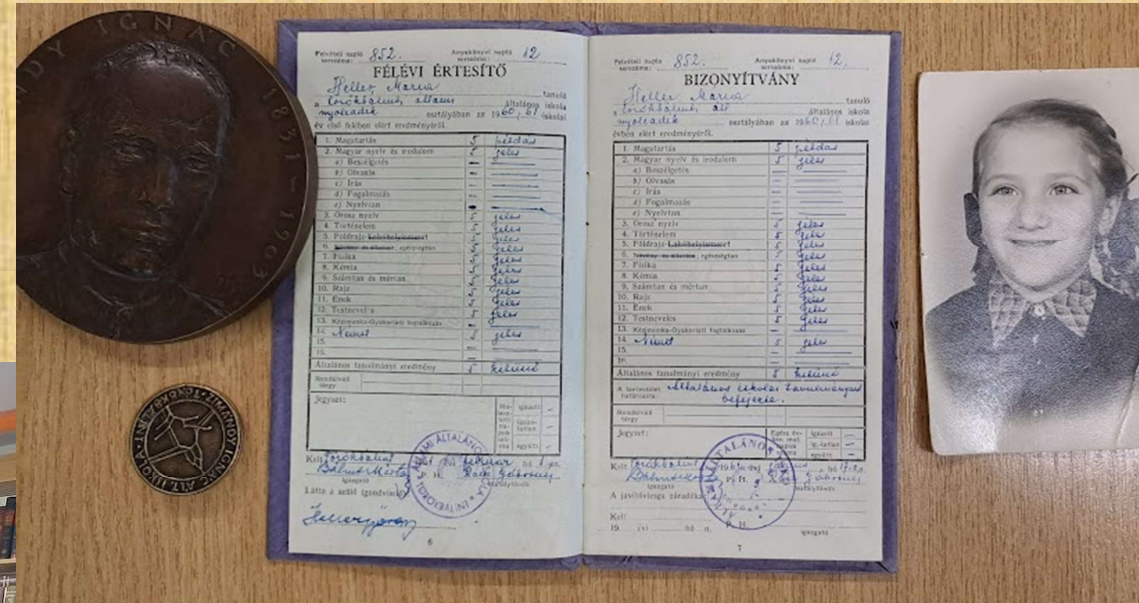 DY IGNÁC 1831–1903
ZIMÁNDY IGNÁC ÁLT. ISKOLA • TÖRÖKBÁLINT •
Felvételi napló sorszáma: 852.
Anyakönyvi napló sorszáma: 12
FÉLÉVI ÉRTESÍTŐ
Heller Mária tanuló
a törökbálinti állami általános iskola
nyolcadik osztályában az 1960/61 iskolai
év első felében elért eredményéről.
1. Magatartás 5 példás
2. Magyar nyelv és irodalom 5 jeles
a) Beszélgetés —
b) Olvasás —
c) Írás —
d) Fogalmazás —
e) Nyelvtan —
3. Orosz nyelv 5 jeles
4. Történelem 5 jeles
5. Földrajz-Lakóhelyismeret 5 jeles
6. egészségtan 5 jeles
7. Fizika 5 jeles
8. Kémia 5 jeles
9. Számtan és mértan 5 jeles
10. Rajz 5 jeles
11. Ének 5 jeles
12. Testnevelés 5 jeles
13. Kézimunka-Gyakorlati foglalkozás —
14. Német 5 jeles
15. —
16. —
Általános tanulmányi eredmény 5 kitűnő
Rendkívüli tárgy
Jegyzet:
igazolt —
igazolatlan —
együtt —
Kelt Törökbálint február hó
P. H.
igazgató osztályfőnök
Látta a szülő (gondviselő):
6
Felvételi napló sorszáma: 852.
Anyakönyvi napló sorszáma: 12.
BIZONYÍTVÁNY
Heller Mária tanuló
a törökbálinti ált. általános iskola
nyolcadik osztályában az 1960/61 iskolai
évben elért eredményéről.
1. Magatartás 5 példás
2. Magyar nyelv és irodalom 5 jeles
a) Beszélgetés —
b) Olvasás —
c) Írás —
d) Fogalmazás —
e) Nyelvtan —
3. Orosz nyelv 5 jeles
4. Történelem 5 jeles
5. Földrajz-Lakóhelyismeret 5 jeles
6. Növény- és állattan, egészségtan 5 jeles
7. Fizika 5 jeles
8. Kémia 5 jeles
9. Számtan és mértan 5 jeles
10. Rajz 5 jeles
11. Ének 5 jeles
12. Testnevelés 5 jeles
13. Kézimunka-Gyakorlati foglalkozás —
14. Német 5 jeles
15. —
16. —
Általános tanulmányi eredmény 5 kitűnő
A tantestület határozata: Általános iskolai tanulmányait
befejezte.
Rendkívüli tárgy
Jegyzet:
igazolt —
ig.-latlan —
együtt —
Kelt Törökbálint
P. H.
igazgató osztályfőnök
A javítóvizsga záradéka:
Kelt
19 évi hó n.
P. H.
igazgató
7